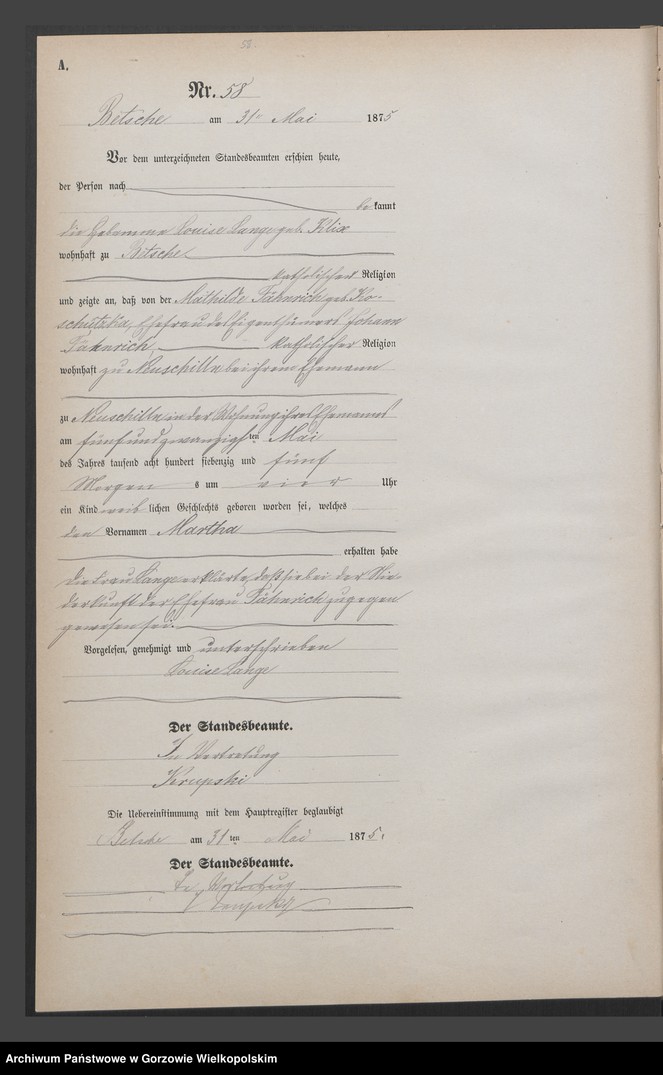 58.
A.
Nr. 58
Betsche am 31ten Mai 1875
Vor dem unterzeichneten Standesbeamten erschien heute,
der Person nach
bekannt
die Hebamme Louise Lange geb. Klix
wohnhaft zu Betsche
katholischer Religion
und zeigte an, daß von der Mathilde Fähnrich geb. Ko-
schützka, Ehefrau des Eigenthümers Johann
Fähnrich, katholischer Religion
wohnhaft zu Neuschilln bei ihrem Ehemann
zu Neuschilln in der Wohnung ihres Ehemannes
am fünfundzwanzigsten Mai
des Jahres tausend acht hundert siebenzig und fünf
Morgens um vier Uhr
ein Kind weiblichen Geschlechts geboren worden sei, welches
den Vornamen Martha
erhalten habe
die Frau Lange erklärte, daß sie bei der Nie-
derkunft der Ehefrau Fähnrich zugegen
gewesen sei.
Vorgelesen, genehmigt und unterschrieben
Louise Lange
Der Standesbeamte.
In Vertretung
Krupski
Die Uebereinstimmung mit dem Hauptregister beglaubigt
Betsche am 31ten Mai 1875.
Der Standesbeamte.
In Vertretung
Krupski
Archiwum Państwowe w Gorzowie Wielkopolskim